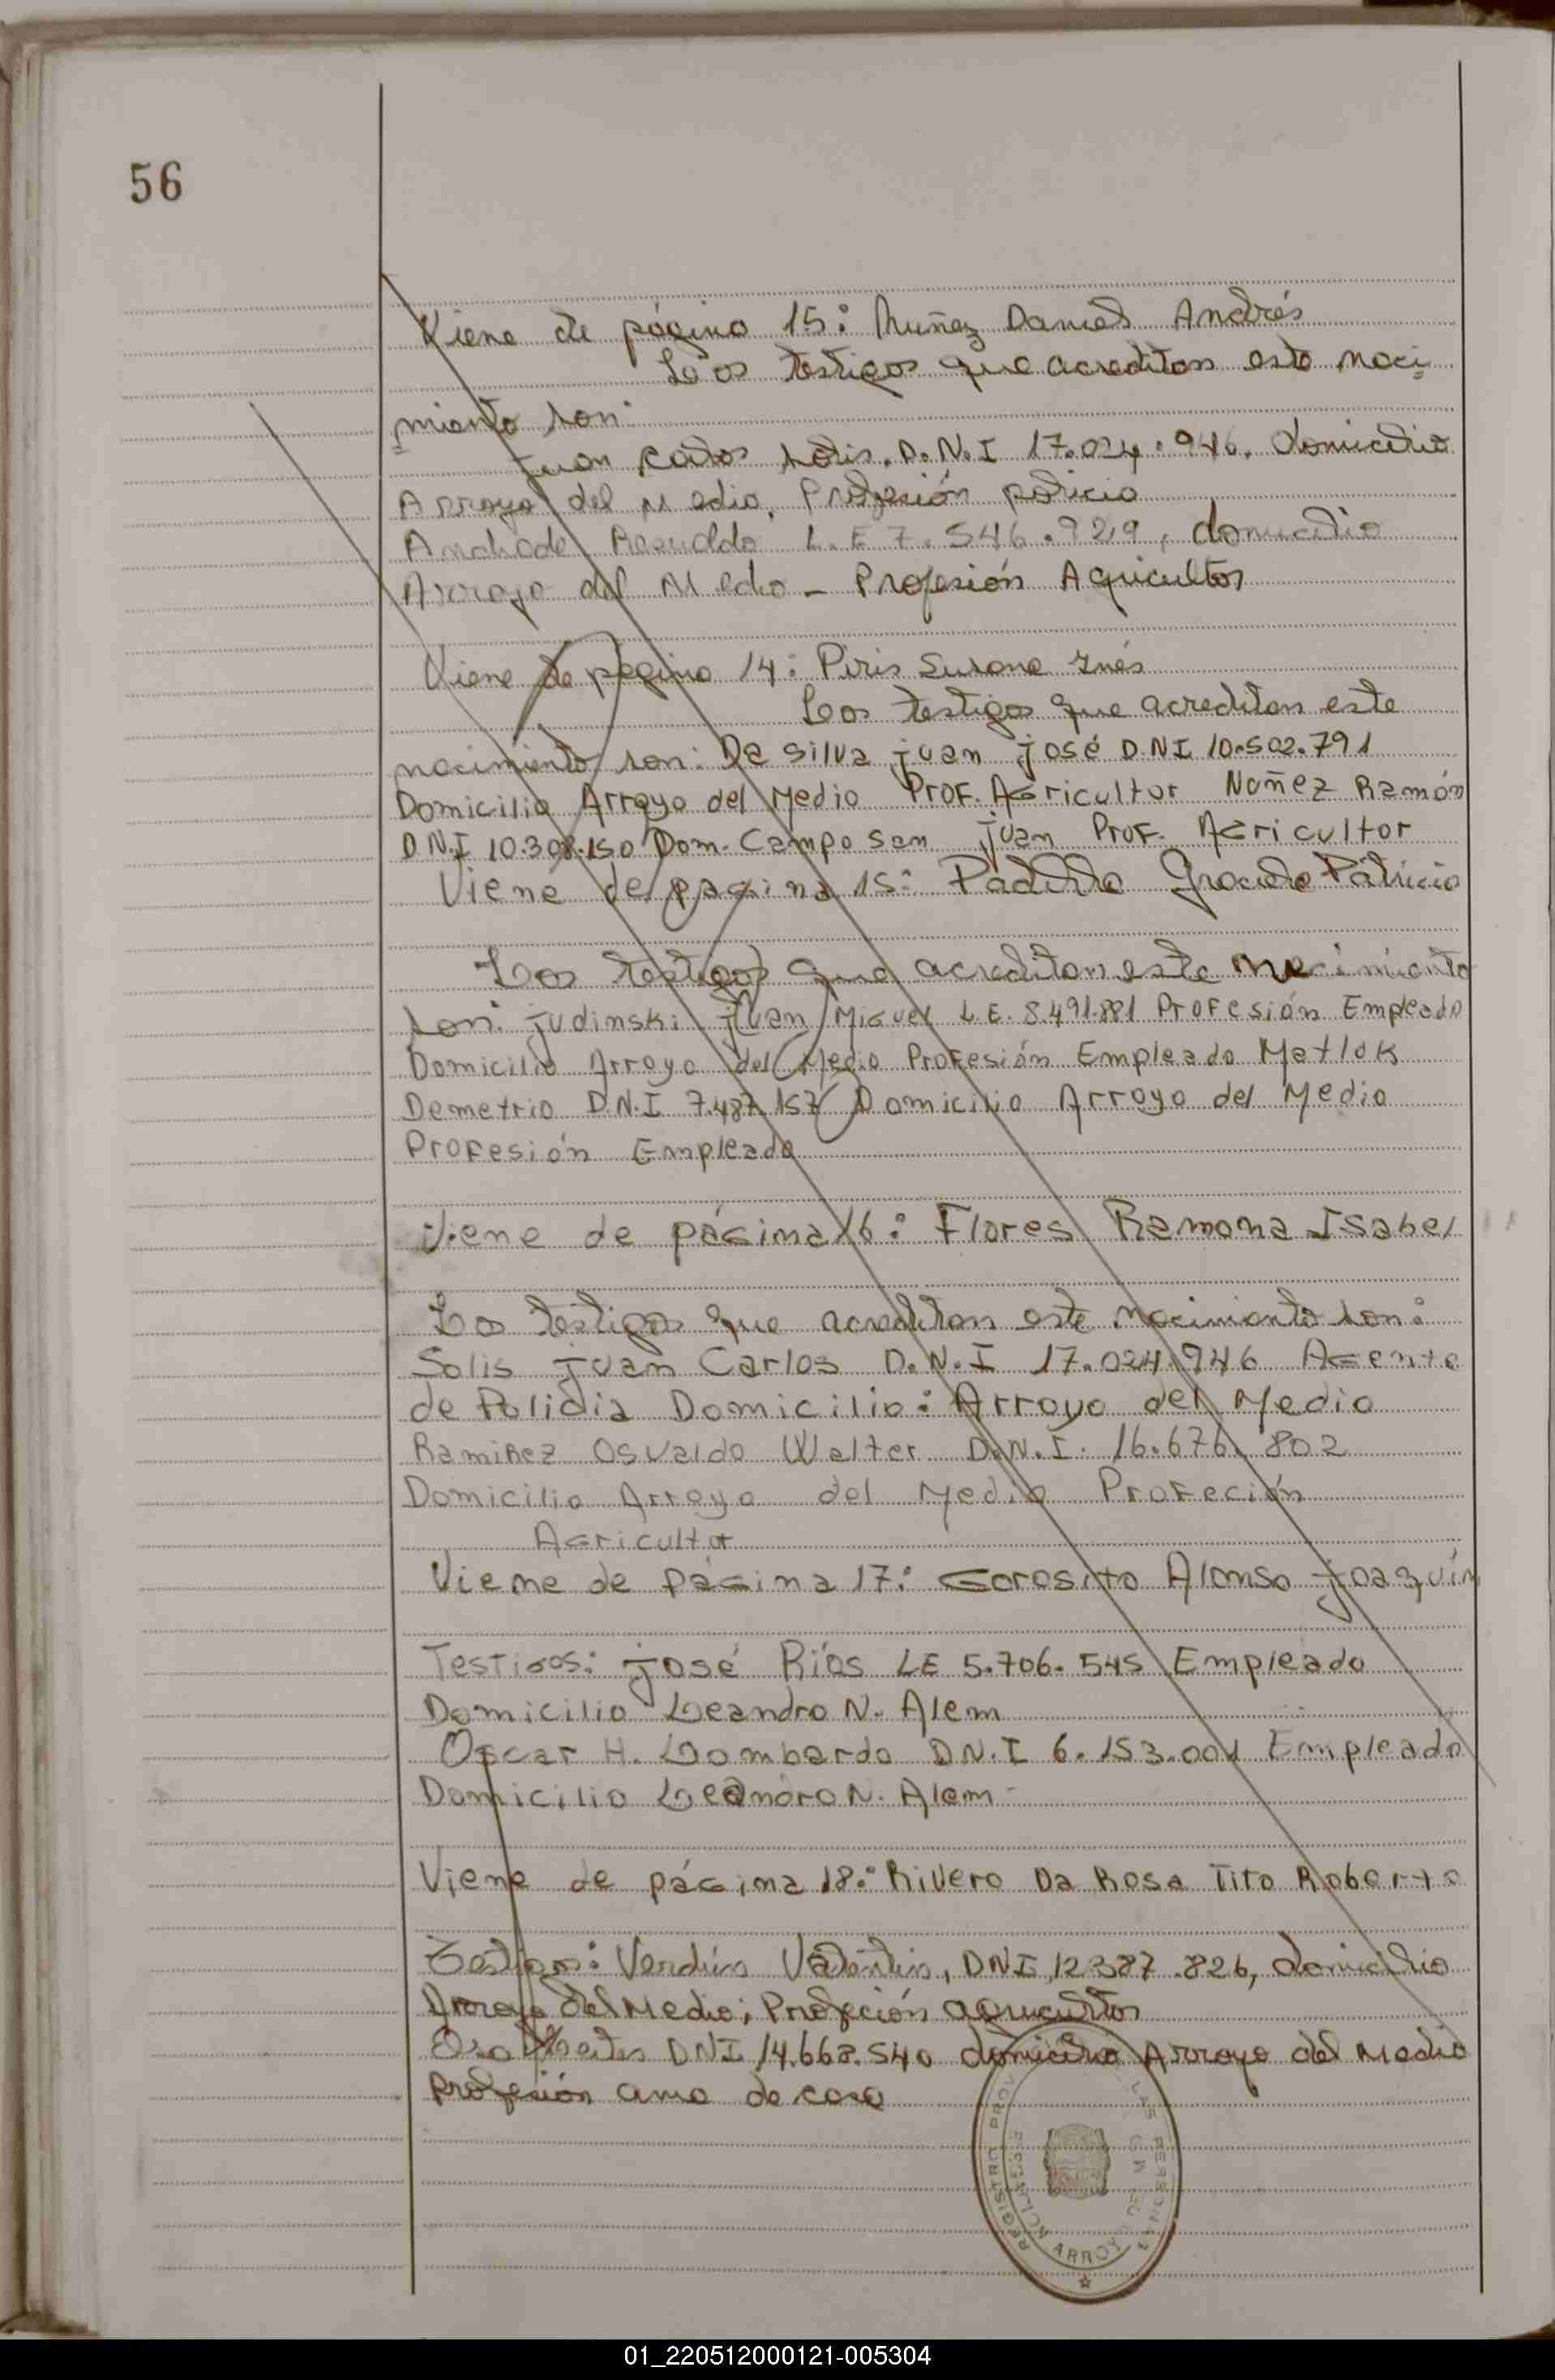 56
Viene de página 15: Nuñez Daniel Andrés
Los testigos que acreditan este naci
miento son:
Juan Carlos Solis. D.N.I 17.024.946, domicilio
Arroyo del Medio, Profesión policia
Andrade Reinaldo L.E 7.546.929, domicilio
Arroyo del Medio - Profesión Agricultor
Viene de pagina 14: Piris Susana Inés
Los testigos que acreditan este
nacimiento son: Da Silva juan josé D.N.I 10.502.791
Domicilio Arroyo del Medio Prof. Agricultor Nuñez Ramón
D.N.I 10.308.150 Dom. Campo san juan Prof. Agricultor
Viene de pagina 15: Padilla Graciela Patricia
Los testigos que acreditan este nacimiento
son: judinski juan Miguel L.E. 8.491.881 Profesión Empleado
Domicilio Arroyo del Medio Profesión Empleado Matlok
Demetrio D.N.I 7.487.157 Domicilio Arroyo del Medio
Profesión Empleado
Viene de página 16: Flores Ramona Isabel
Los testigos que acreditan este nacimiento son:
Solis juan Carlos D.N.I 17.024.946 Agente
de Policia Domicilio: Arroyo del Medio
Ramirez Osvaldo Walter D.N.I. 16.676.802
Domicilio Arroyo del Medio Profeción
Agricultor
Viene de página 17: Gorosito Alonso joaquín
Testigos: josé Ríos LE 5.706.545 Empleado
Domicilio Leandro N. Alem
Oscar H. Lombardo D.N.I 6.153.001 Empleado
Domicilio Leandro N. Alem -
Viene de página 18: Rivero Da Rosa Tito Roberto
Testigos: Verdún Valentin, DNI 12387.826, domicilio
Arroyo del Medio; Profeción agricultor
DNI 14.668.540 domicilio Arroyo del Medio
Profesión ama de casa
REGISTRO PROV LAS PERSONAS
ARROYO DEL M
01_220512000121-005304